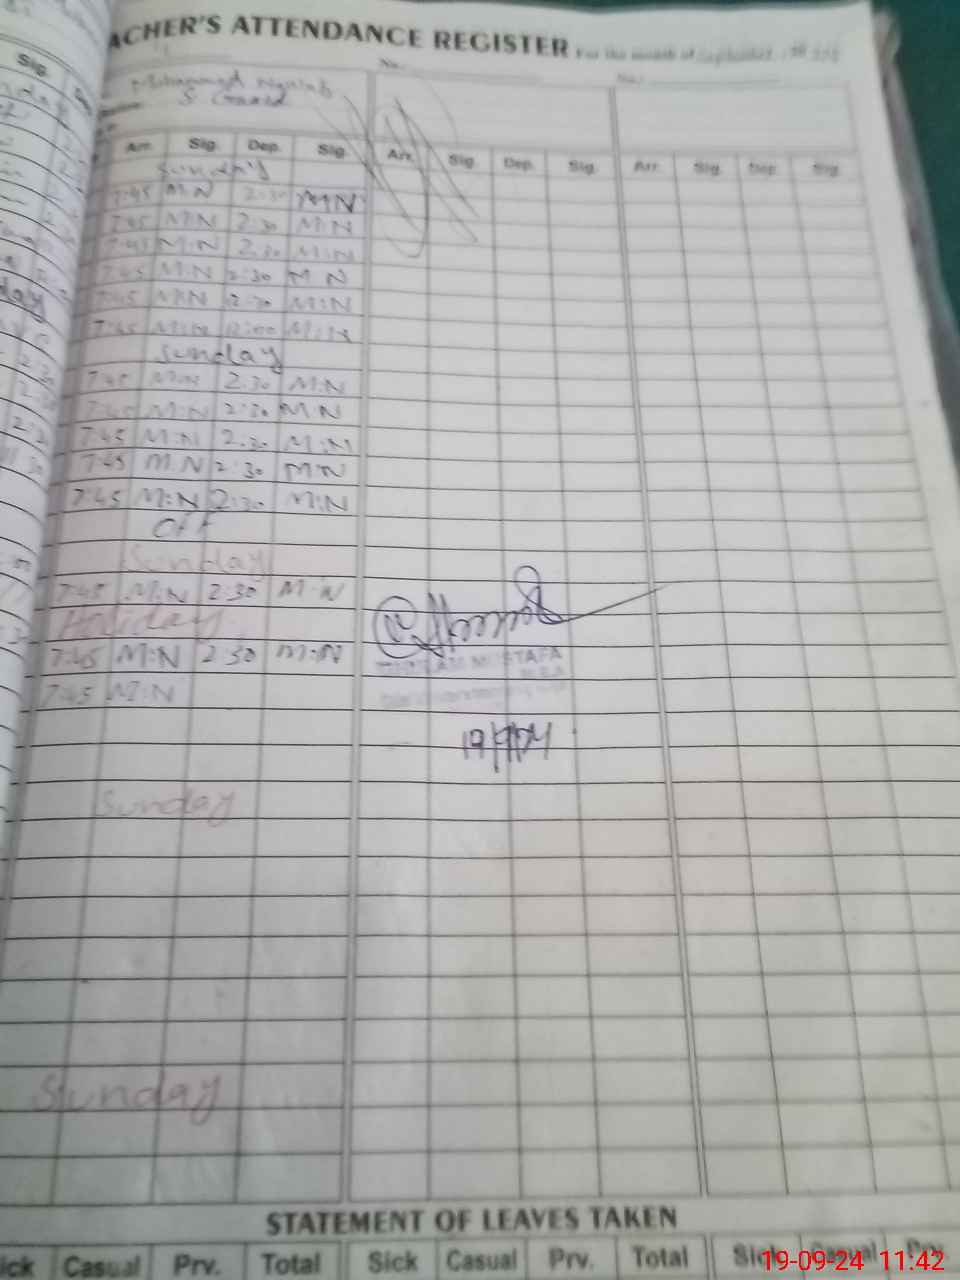 ACHER'S ATTENDANCE REGISTER For the month of September
No.
No.
Arr. Sig. Dep. Sig. Arr. Sig. Dep. Sig. Arr. Sig. Dep. Sig.
Sunday
7:45 M N 2:30 M N
7:45 M:N 2:30 M:N
7:45 M:N 2:30 M:N
7:45 M:N 2:30 M N
7:45 M:N 2:30 M:N
7:45 M:N 12:00 M:N
Sunday
7:45 M:N 2:30 M:N
7:45 M:N 2:30 M:N
7:45 M:N 2:30 M:N
7:45 M.N 2:30 M:N
7:45 M:N 2:30 M:N
Off
Sunday
7:45 M:N 2:30 M:N
Holiday
7:45 M:N 2:30 M:N
MUSTAFA
7:45 M:N
Sunday
Sunday
STATEMENT OF LEAVES TAKEN
ick Casual Prv. Total Sick Casual Prv. Total Sick Casual Prv.
19-09-24 11:42